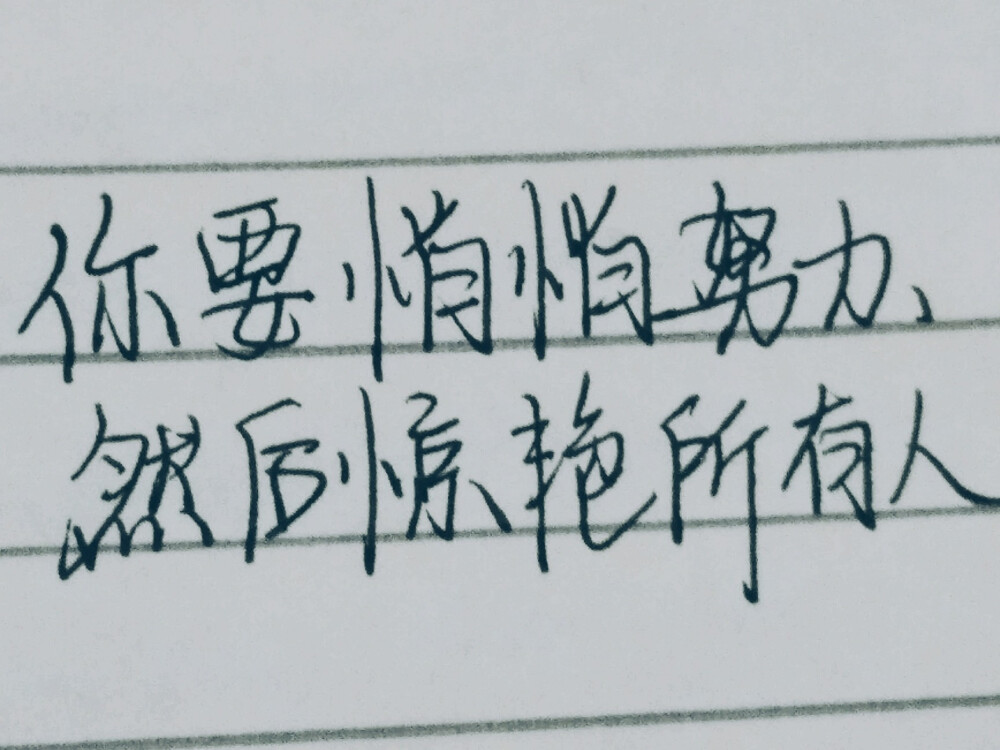 你要悄悄努力、
然后惊艳所有人